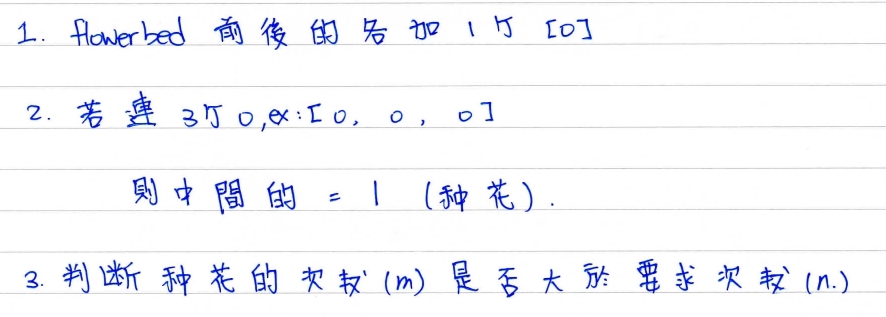 1. flowerbed 前後的各加1个[0]
2. 若連3个0,ex:[0, 0, 0]
則中間的 = 1 (种花).
3. 判断种花的次数(m)是否大於要求次数(n.)